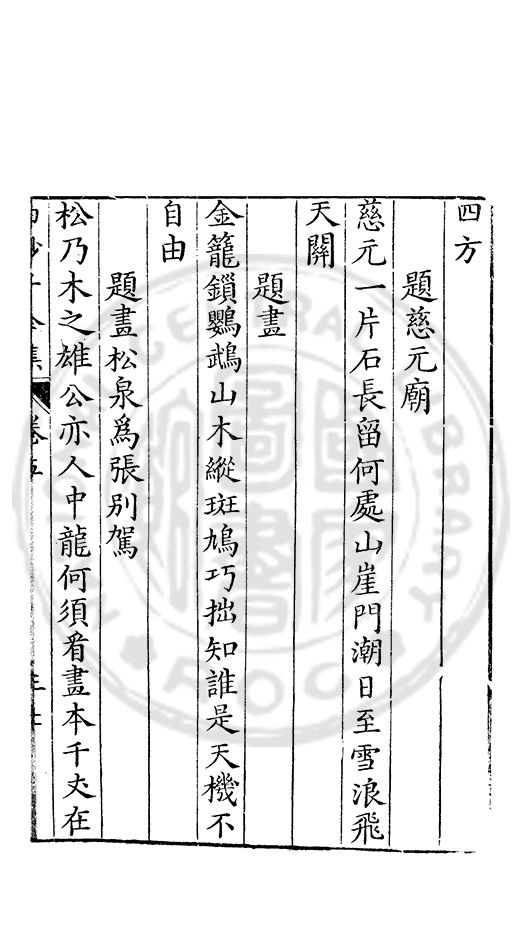 四方
題慈元廟
慈元一片石長留何處山崖門潮日至雪浪飛
天關
題畫
金籠鎖鸚鵡山木縱斑鳩巧拙知誰是天機不
自由
題畫松泉爲張別駕
松乃木之雄公亦人中龍何須看畫本千丈在
子全集 卷五